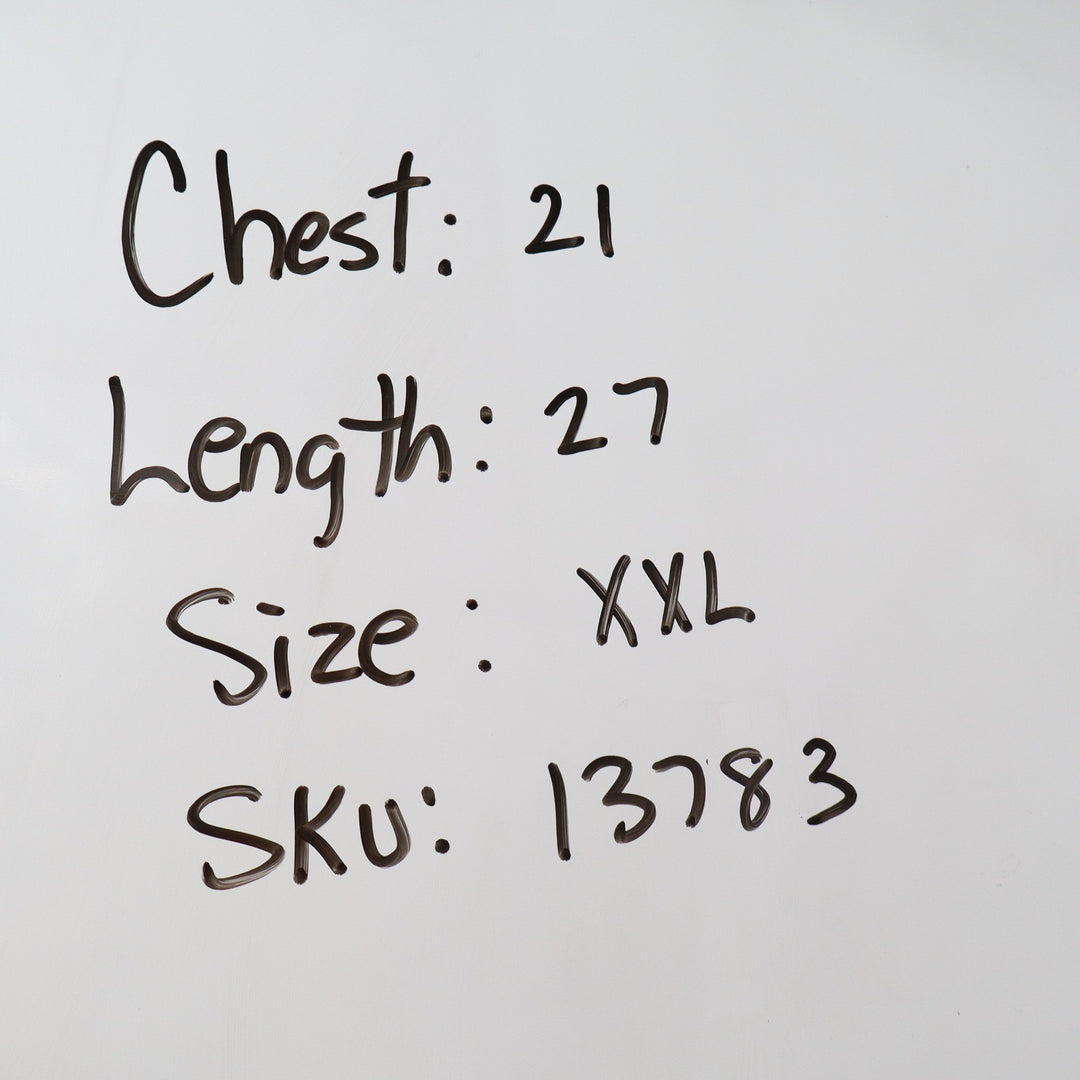 Chest: 21
Length: 27
Size: XXL
SKU: 13783